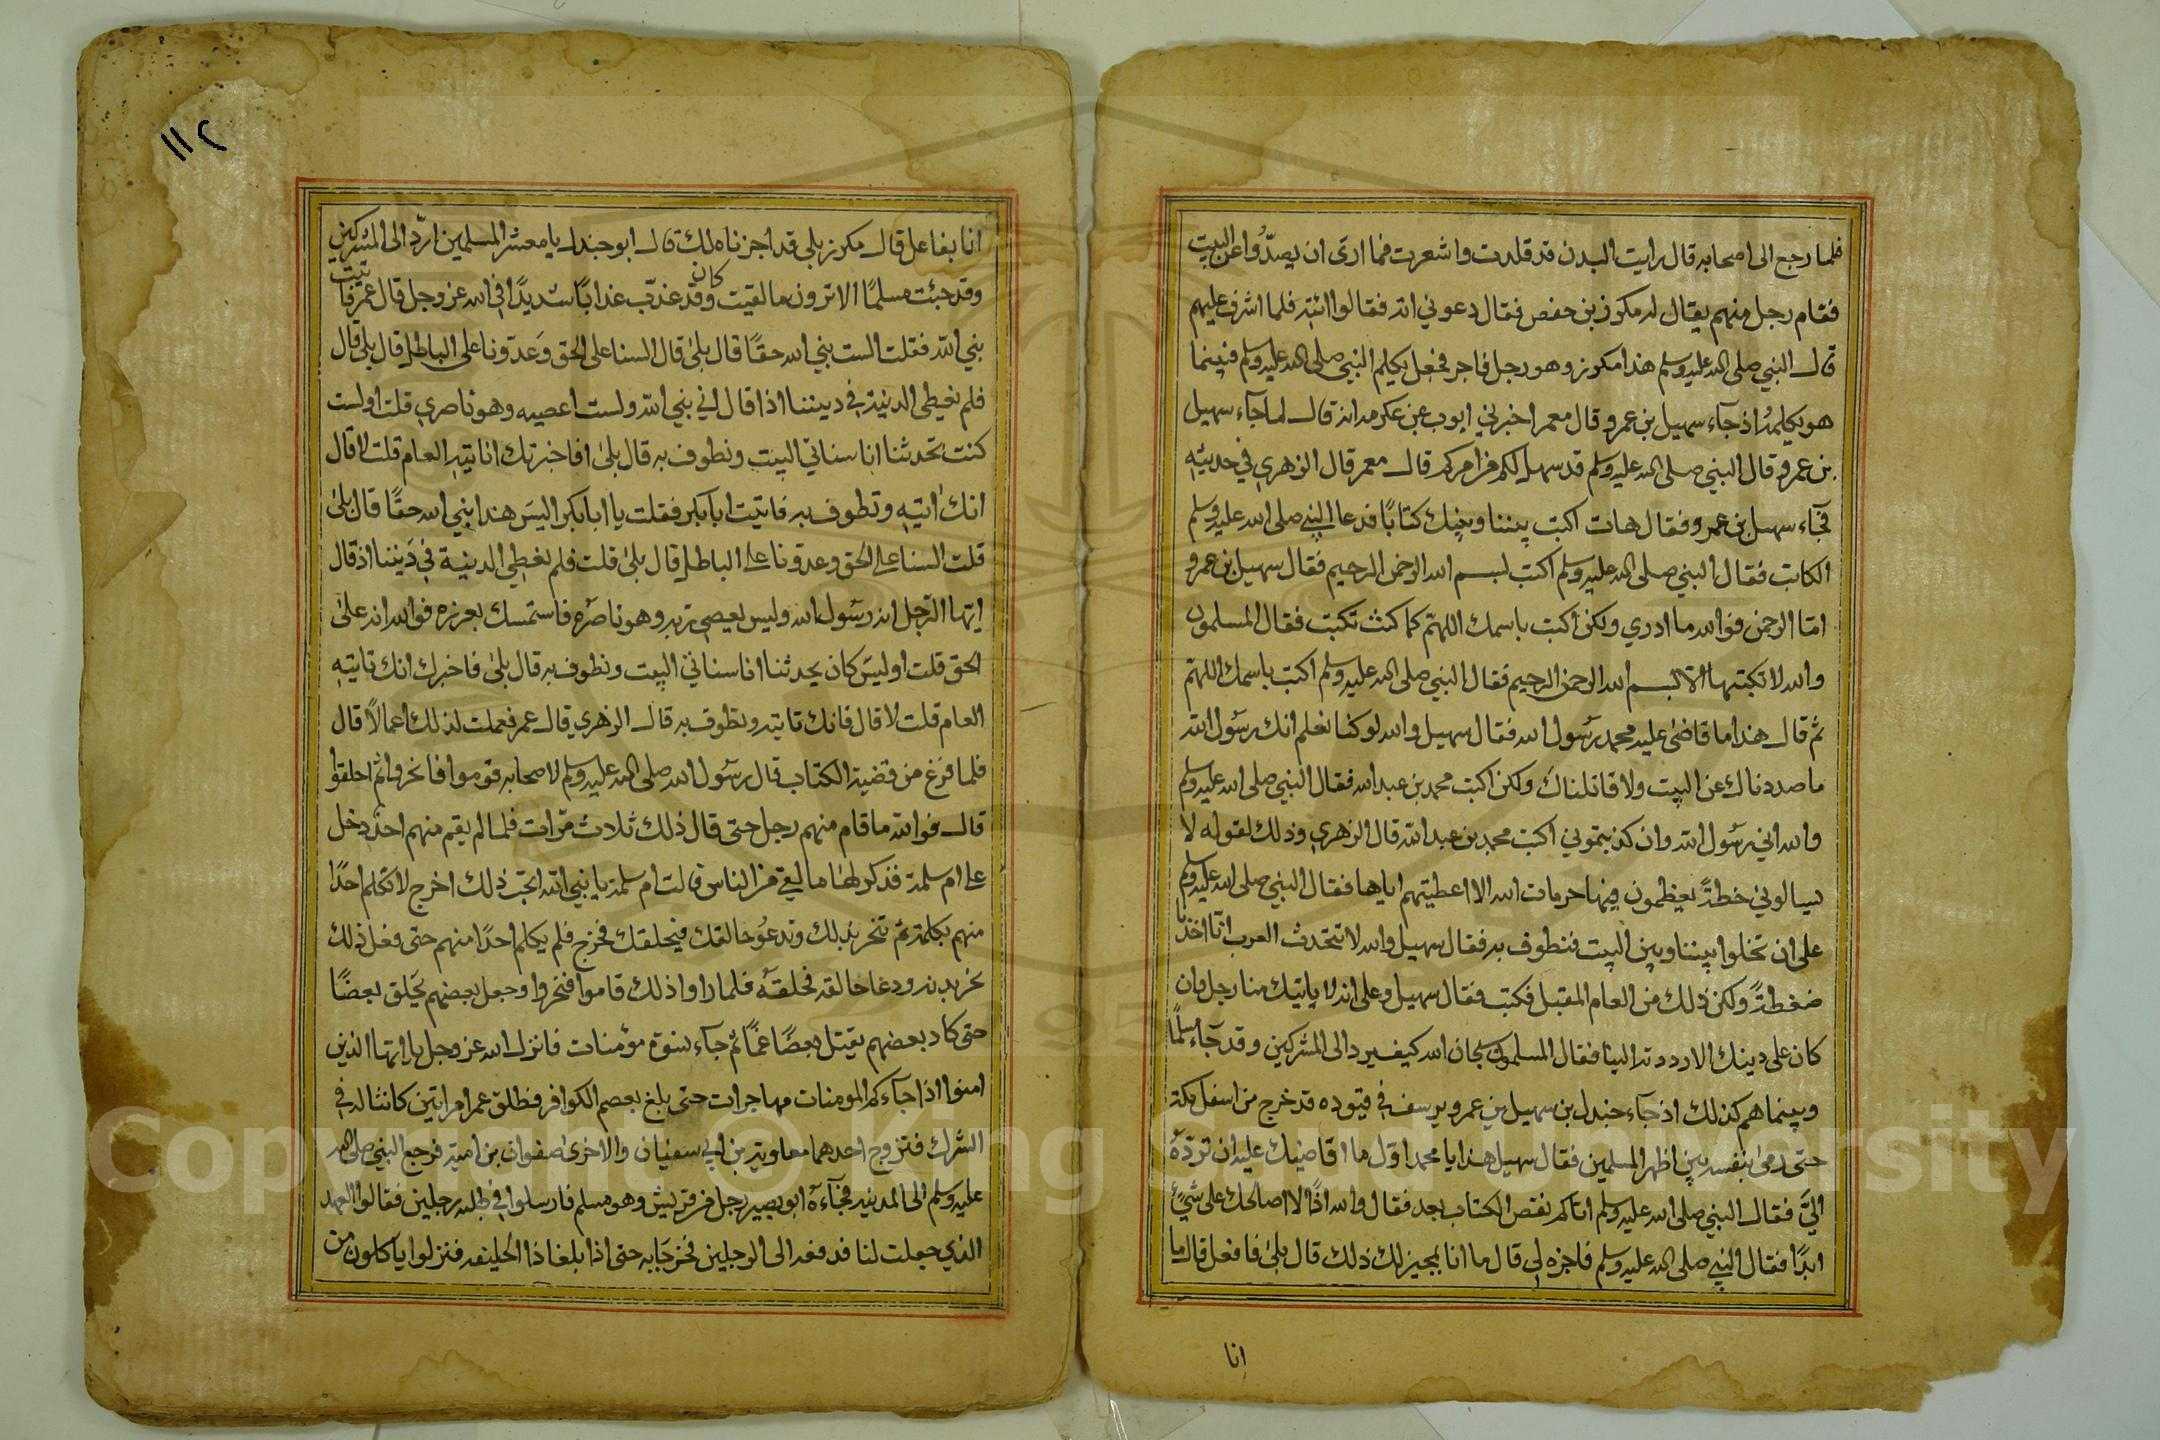 فلما رجع الى اصحابه قال رايت البدن قد قلدت واشعرت فما ارى ان يصدّوا عن البيت
فقام رجل منهم يقال له مكرز بن حفص فقال دعوني اته فقالوا ائته فلما اشرف عليهم
قال النبي صلى الله عليه وسلم هذا مكرز وهو رجل فاجر فجعل يكلم النبي صلى الله عليه وسلم فبينما
هو يكلمهُ اذ جآء سهيل بن عمرو قال معمر اخبرني ايوب عن عكرمه انه قال لما جآء سهيل
بن عمرو قال النبي صلى الله عليه وسلم قد سهل لكم من امركم قال معمر قال الزهري في حديثه
فجآء سهيل بن عمرو فقال هات اكتب بيننا وبينك كتابًا فدعا النبي صلى الله عليه وسلم
الكاتب فقال النبي صلى الله عليه وسلم اكتب بسم الله الرحمن الرحيم فقال سهيل بن عمرو
امّا الرحمن فوالله ما ادري ولكن أكتب باسمك اللهمّ كما كنت تكتب فقال المسلمون
والله لا تكتبها الا بسم الله الرحمن الرحيم فقال النبي صلى الله عليه وسلم اكتب باسمك اللهمّ
ثم قال هذا ما قاضى عليه محمد رسول الله فقال سهيل والله لو كنا نعلم انك رسول الله
ما صددناك عن البيت ولا قاتلناك ولكن اكتب محمد بن عبد الله فقال النبي صلى الله عليه وسلم
والله اني رسول الله وان كذبتموني اكتب محمد بن عبد الله قال الزهري وذلك لقوله لا
يسالوني خطةً يعظمون فيها حرمات الله الا اعطيتهم اياها فقال النبي صلى الله عليه وسلم
على ان تخلوا بيننا وبين البيت فنطوف به فقال سهيل والله لا تتحدث العرب انا اخذنا
ضغطةً ولكن ذلك من العام المقبل فكتب فقال سهيل وعلى انه لا ياتيك منا رجل وان
كان على دينك الا رددته الينا فقال المسلمون سبحان الله كيف يرد الى المشركين وقد جآء مسلمًا
وبينما هم كذلك اذ جآء جندل بن سهيل بن عمرو يرسف في قيوده قد خرج من اسفل مكة
حتى رمى بنفسه بين اظهر المسلمين فقال سهيل هذا يا محمد اوّل ما اقاضيك عليه ان تردّهُ
اليَّ فقال النبي صلى الله عليه وسلم انا لم نقض الكتاب بعد فقال والله اذًا لا اصالحك على شيٍ
ابدًا فقال النبي صلى الله عليه وسلم فاجزه لي قال ما انا بمجيز لك ذلك قال بلى فافعل قال ما
انا
١١٢
انا بفاعل قال مكرز بلى قد اجزناه لك قال ابو جندل يا معشر المسلمين اردّ الى المشركين
وقد جئت مسلمًا الا ترون ما لقيت وكان قد عذّب عذابًا شديدًا في الله عز وجل قال عمر فاتيت
نبي الله فقلت الست نبي الله حقًا قال بلى قال السنا على الحق وعدونا على الباطل قال بلى قال
فلم نعطي الدنية في ديننا اذا قال اني نبي الله ولست اعصيه وهو ناصري قلت اولست
كنت تحدثنا انا سناتي البيت ونطوف به قال بلى افاخبرتك انا تيه العام قلت لا قال
انك اتيه وتطوف به فاتيت ابا بكر فقلت يا ابا بكر اليس هذا نبي الله حقًا قال بلى
قلت السنا على الحق وعدونا على الباطل قال بلى قلت فلم نعطي الدنية في ديننا اذ قال
ايّها الرّجل انه رسول الله وليس يعصي ربه وهو ناصره فاستمسك بغرزه فوالله انه على
الحق قلت اوليس كان يحدثنا انا سناتي البيت ونطوف به قال بلى فاخبرك انك تاتيه
العام قلت لا قال فانك تاتيه وتطوف به قال الزهري قال عمر فعملت لذلك اعمالاً قال
فلما فرغ من قضية الكتاب قال رسول الله صلى الله عليه وسلم لاصحابه قوموا فانحروا ثم احلقوا
قال فوالله ما قام منهم رجل حتى قال ذلك ثلاث مرّات فلما لم يقم منهم احدٌ دخل
على ام سلمة فذكر لها ما لقي من الناس قالت ام سلمة يا نبي الله اتحبّ ذلك اخرج لا تكلم احدًا
منهم بكلمة ثمّ تنحر بدنك وتدعُو حالقك فيحلقك فخرج فلم يكلم احدًا منهم حتى فعل ذلك
نحر بدنه ودعا حالقه فحلقهُ فلما راوا ذلك قاموا فنحروا وجعل بعضهم يحلق بعضًا
حتى كاد بعضهم يقتل بعضًا غمًا ثم جآء نسوة مؤمنات فانزل الله عز وجل يا ايّها الذين
امنوا اذا جآءكم المومنات مهاجرات حتى بلغ بعصم الكوافر فطلق عمر امراتين كانتا له في
الشرك فتزوج احدهما معاوية بن ابي سفيان والاخرى صفوان بن امية فرجع النبي صلى الله
عليه وسلم الى المدينه فجآءهُ ابو بصير رجل من قريش وهو مسلم فارسلوا في طلبه رجلين فقالوا العهد
الذي جعلت لنا فدفعه الى الرجلين فخرجا به حتى اذا بلغا ذا الحليفه فنزلوا ياكلون من
Copyright © King Saud University